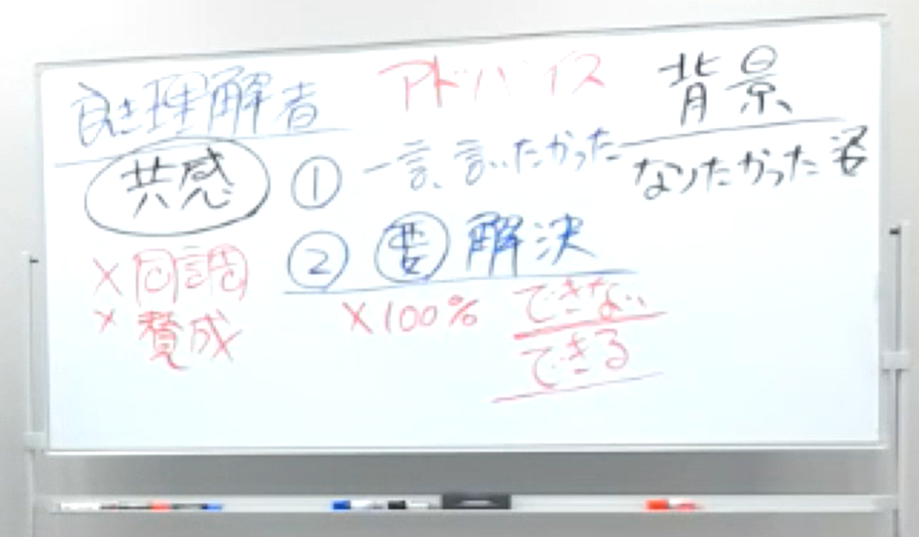 良き理解者
共感
×同調
×賛成
アドバイス
① 一言、言いたかった
② 要 解決
×100%
できない
できる
背景
なりたかった姿